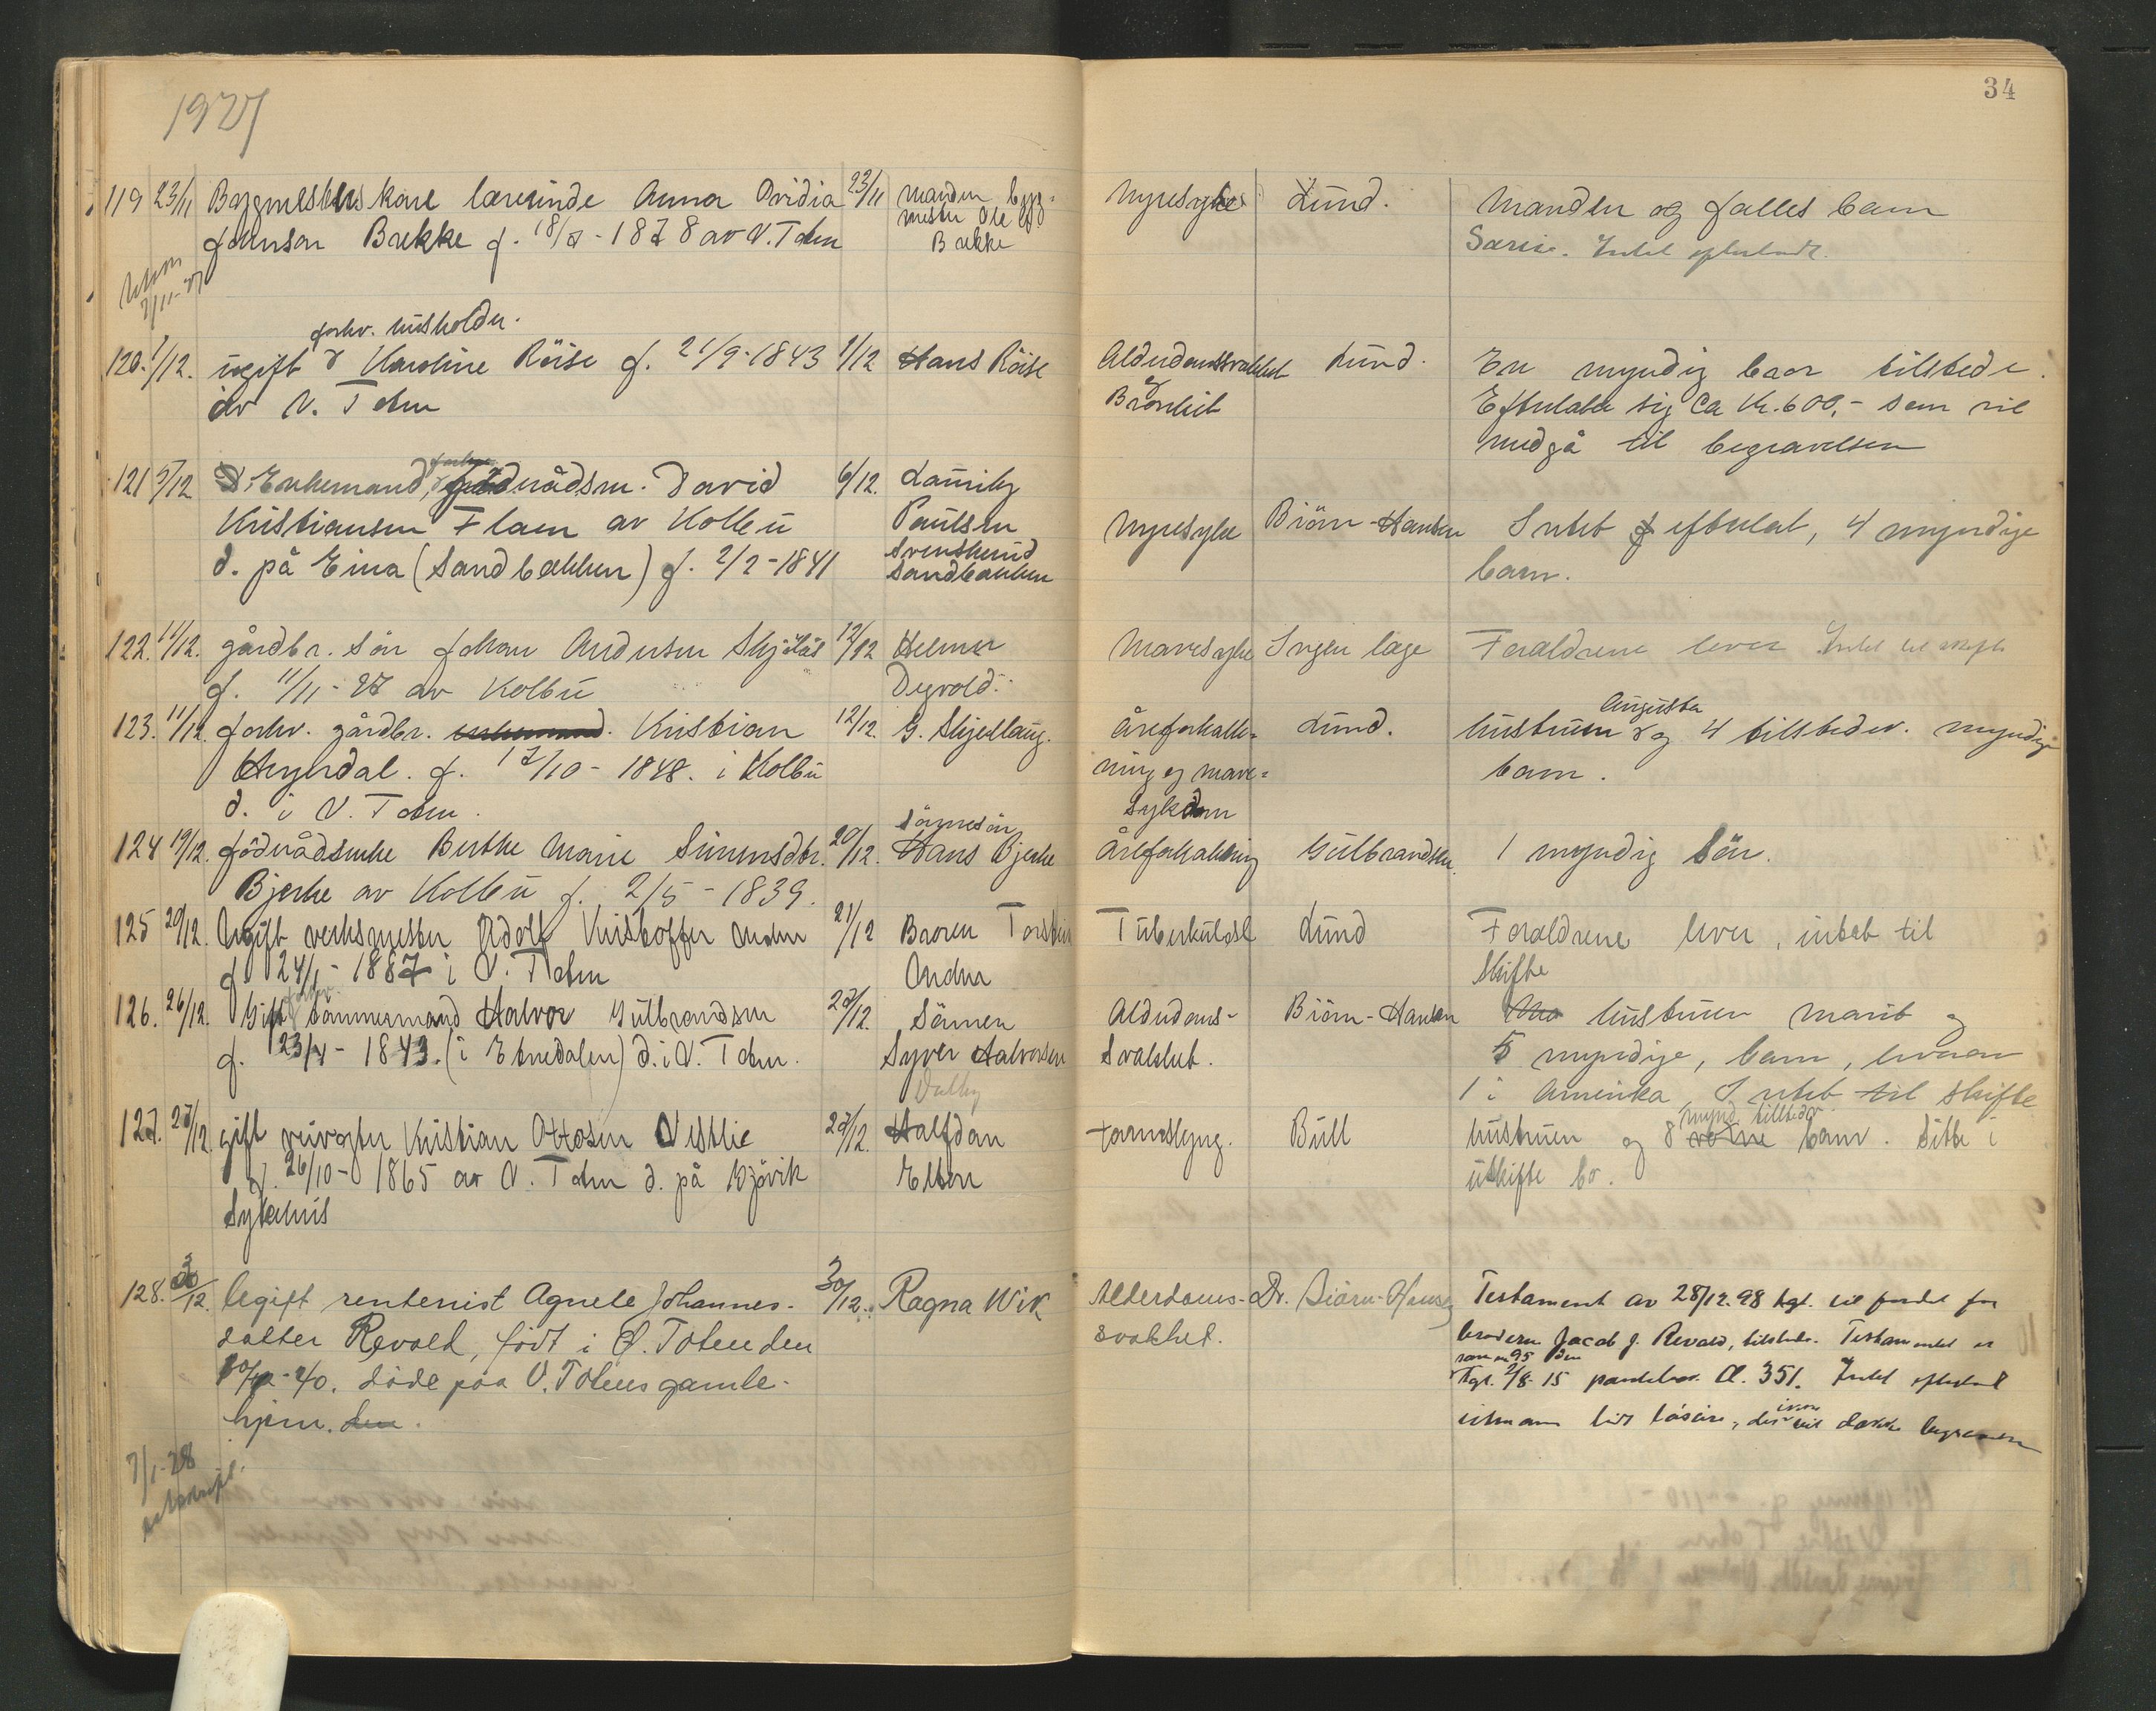 1927
34
119 23/11 Bygmesters kone lærerinde Anna Ovidia 23/11 Manden byg-
mester Ole
Johnson Brække f. 18/7-1878 av V. Toten Brække
Nyresyke Lund. Manden og fælles barn
Særeie. Intet efterladt.
forhv. husholder.
120. 1/12. ugift Karoline Röise f. 21/9-1843 1/12 Hans Röise
av V. Toten
Alderdomssvakhet Lund. En myndig bror tilstede.
og Bronkit Efterlater sig ca kr. 600,- som vil
medgå til begravelsen
121 5/12 Enkemand, forhv. David 6/12. Laurits
Kristiansen Flaen av Kolbu Paulsen
d. på Eina (Sandbakken) f. 2/2-1841 Svenskerud
Sandbakken
Nyresyke Biörn-Hansen Intet efterlat, 4 myndige
barn.
122. 11/12. gårdbr. sön Johan Andersen Skjölås 12/12 Helmer
f. 11/11-27 av Kolbu Dyvold.
Mavesyke Ingen læge Forældrene lever Intet til skifte
123. 11/12. forhv. gårdbr. enkemand. Kristian 12/12. G. Skjellaug.
Hyrdal. f. 17/10-1848. i Kolbu
d. i V. Toten.
Åreforkalk- Lund. hustruen Augusta og 4 tilstedev. myndige
ning og mave- barn.
sykdom
124 19/12. födrådsenke Berthe Marie Simensdtr. 20/12. Sönnesön
Hans Bjerke
Bjerke av Kolbu f. 2/5-1839.
Åreforkalkning Gulbrandsen. 1 myndig sön.
125 20/12. Ugift verksmester Adolf Kristoffer 21/12 Broren Torstein
f 24/1-1887 i V. Toten
Tuberkulose Lund Forældrene lever, intet til
skifte
126. 26/12. Gift forhv. tömmermand Halvor Gulbrandsen 27/12. Sönnen
f. 23/4-1843. (i Etnedalen) d. i V. Toten. Syver Halvorsen
Alderdoms- Biörn-Hansen hustruen Marit og
svakhet. 5 myndige, barn, hvorav
1 i Amerika, Intet til skifte
127. 27/12. gift veivogter Kristian Ottosen Vestlie 27/12. Halfdan
f. 26/10-1865 av V. Toten d. på Gjövik Elton
Sykehus
tarmslyng. Bull hustruen og 8 mynd. tilstedev. barn. Sitte i
uskifte bo.
128. 30/12. Ugift rentenist Agnete Johannes- 30/12. Ragna Wik
datter Revold, født i Ø. Toten den
-40. døde paa V. Totens gamle-
hjem. den.
Alderdoms- Dr. Biørn-Hansen Testament av 28/12.98 tgl. til fordel for
svakhet. broderen Jacob J. Revold, tilstede. Testamentet er
tgl. 2/8-15 pantebok Cl. 351. Intet efterladt
utenom lidt løsøre, der ikke vil dække begravelsen
7/1-28